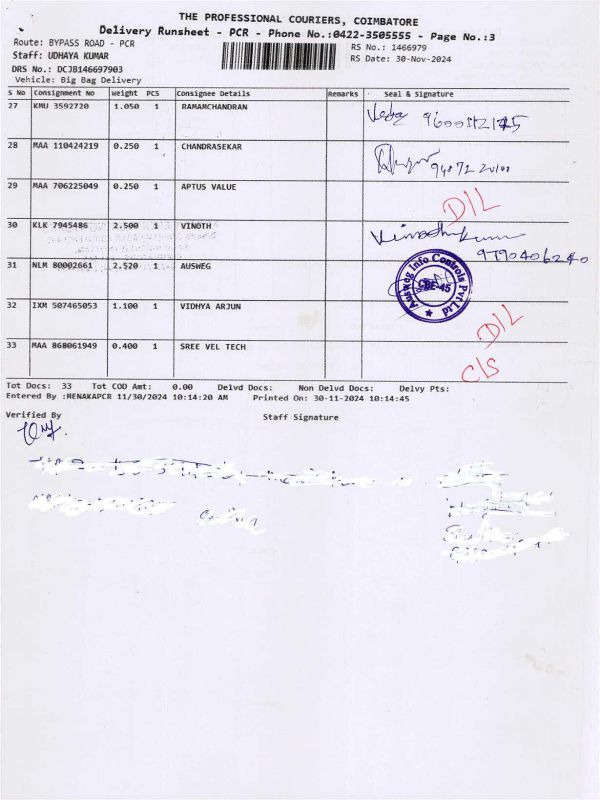 THE PROFESSIONAL COURIERS, COIMBATORE
Delivery Runsheet - PCR - Phone No.:0422-3505555 - Page No.:3
Route: BYPASS ROAD - PCR
RS No.: 1466979
Staff: UDHAYA KUMAR
RS Date: 30-Nov-2024
DRS No.: DCJB146697903
Vehicle: Big Bag Delivery
S No Consignment No Weight PCS Consignee Details Remarks Seal & Signature
27 KMU 3592720 1.050 1 RAMAMCHANDRAN
28 MAA 110424219 0.250 1 CHANDRASEKAR
29 MAA 706225049 0.250 1 APTUS VALUE D/L
30 KLK 7945486 2.500 1 VINOTH Vinothkumar
9790406240
31 NLM 80002661 2.520 1 AUSWEG
Ausweg Info Controls Pvt Ltd
CBE-45
32 IXM 507465053 1.100 1 VIDHYA ARJUN D/L
33 MAA 868061949 0.400 1 SREE VEL TECH C/S
Tot Docs: 33 Tot COD Amt: 0.00 Delvd Docs: Non Delvd Docs: Delvy Pts:
Entered By :MENAKAPCR 11/30/2024 10:14:20 AM Printed On: 30-11-2024 10:14:45
Verified By
Staff Signature